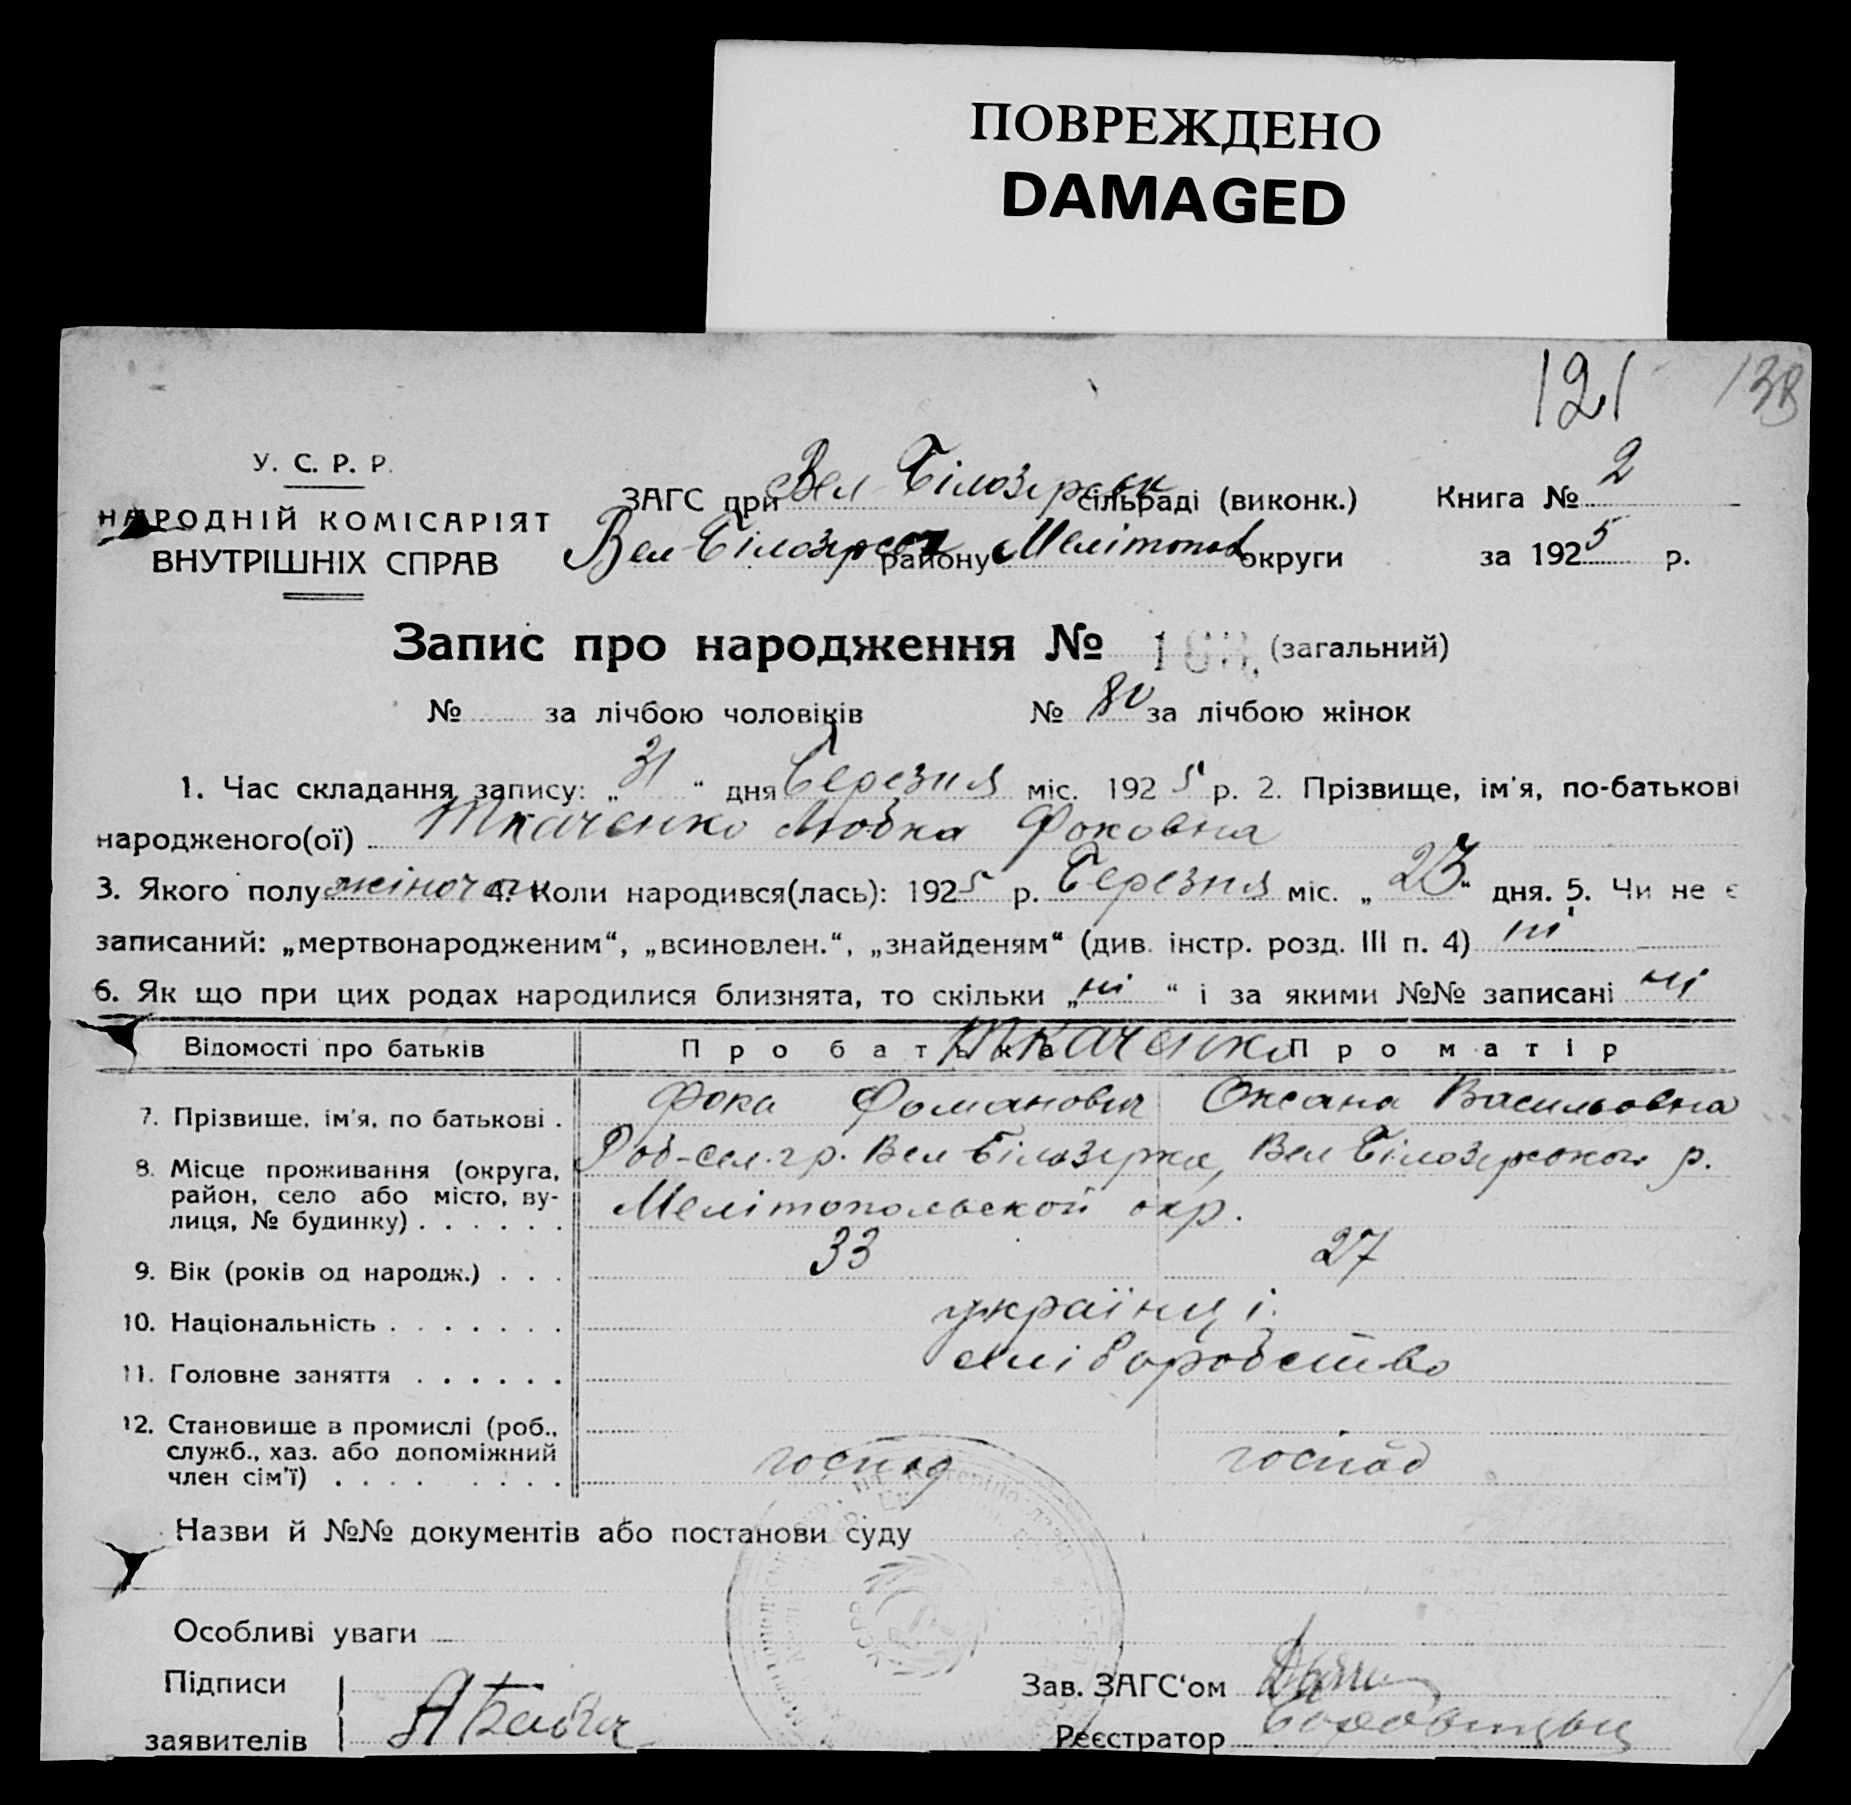 ПОВРЕЖДЕНО
DAMAGED
121 138
У. С. Р. Р.
НАРОДНІЙ КОМІСАРІЯТ
ВНУТРІШНІХ СПРАВ
ЗАГС при Вел-Білозерск сільраді (виконк.) Книга № 2
Вел-Білозерск району Мелітопол округи за 1925 р.
Запис про народження № (загальний)
№ за лічбою чоловіків № 80 за лічбою жінок
1. Час складання запису: „31“ дня Березня міс. 1925 р. 2. Прізвище, ім'я, по-батькові
народженого(ої) Ткаченко Любка Фоковна
3. Якого полу жіночого 4. Коли народився(лась): 1925 р. Березня міс. „23“ дня. 5. Чи не є
записаний: „мертвонародженим“, „всиновлен.“, „знайденям“ (див. інстр. розд. III п. 4) ні
6. Як що при цих родах народилися близнята, то скільки „ні“ і за якими №№ записані ні
Відомості про батьків Про батька Ткаченко Про матір
7. Прізвище, ім'я, по батькові . Фока Романович Оксана Васильовна
8. Місце проживання (округа, район, село або місто, вулиця, № будинку) . . . . . . Вел Білозерка, Вел Білозерской р.
Мелітопольской окр.
9. Вік (років од народж.) . . . 33 27
10. Національність . . . . . . . українці.
11. Головне заняття . . . . . . хліборобство
12. Становище в промислі (роб.,
служб., хаз. або допоміжний
член сім'ї) . . . . . . . . . господ господ
Назви й №№ документів або постанови суду
Особливі уваги
Підписи
заявителів
Зав. ЗАГС'ом
Реєстратор